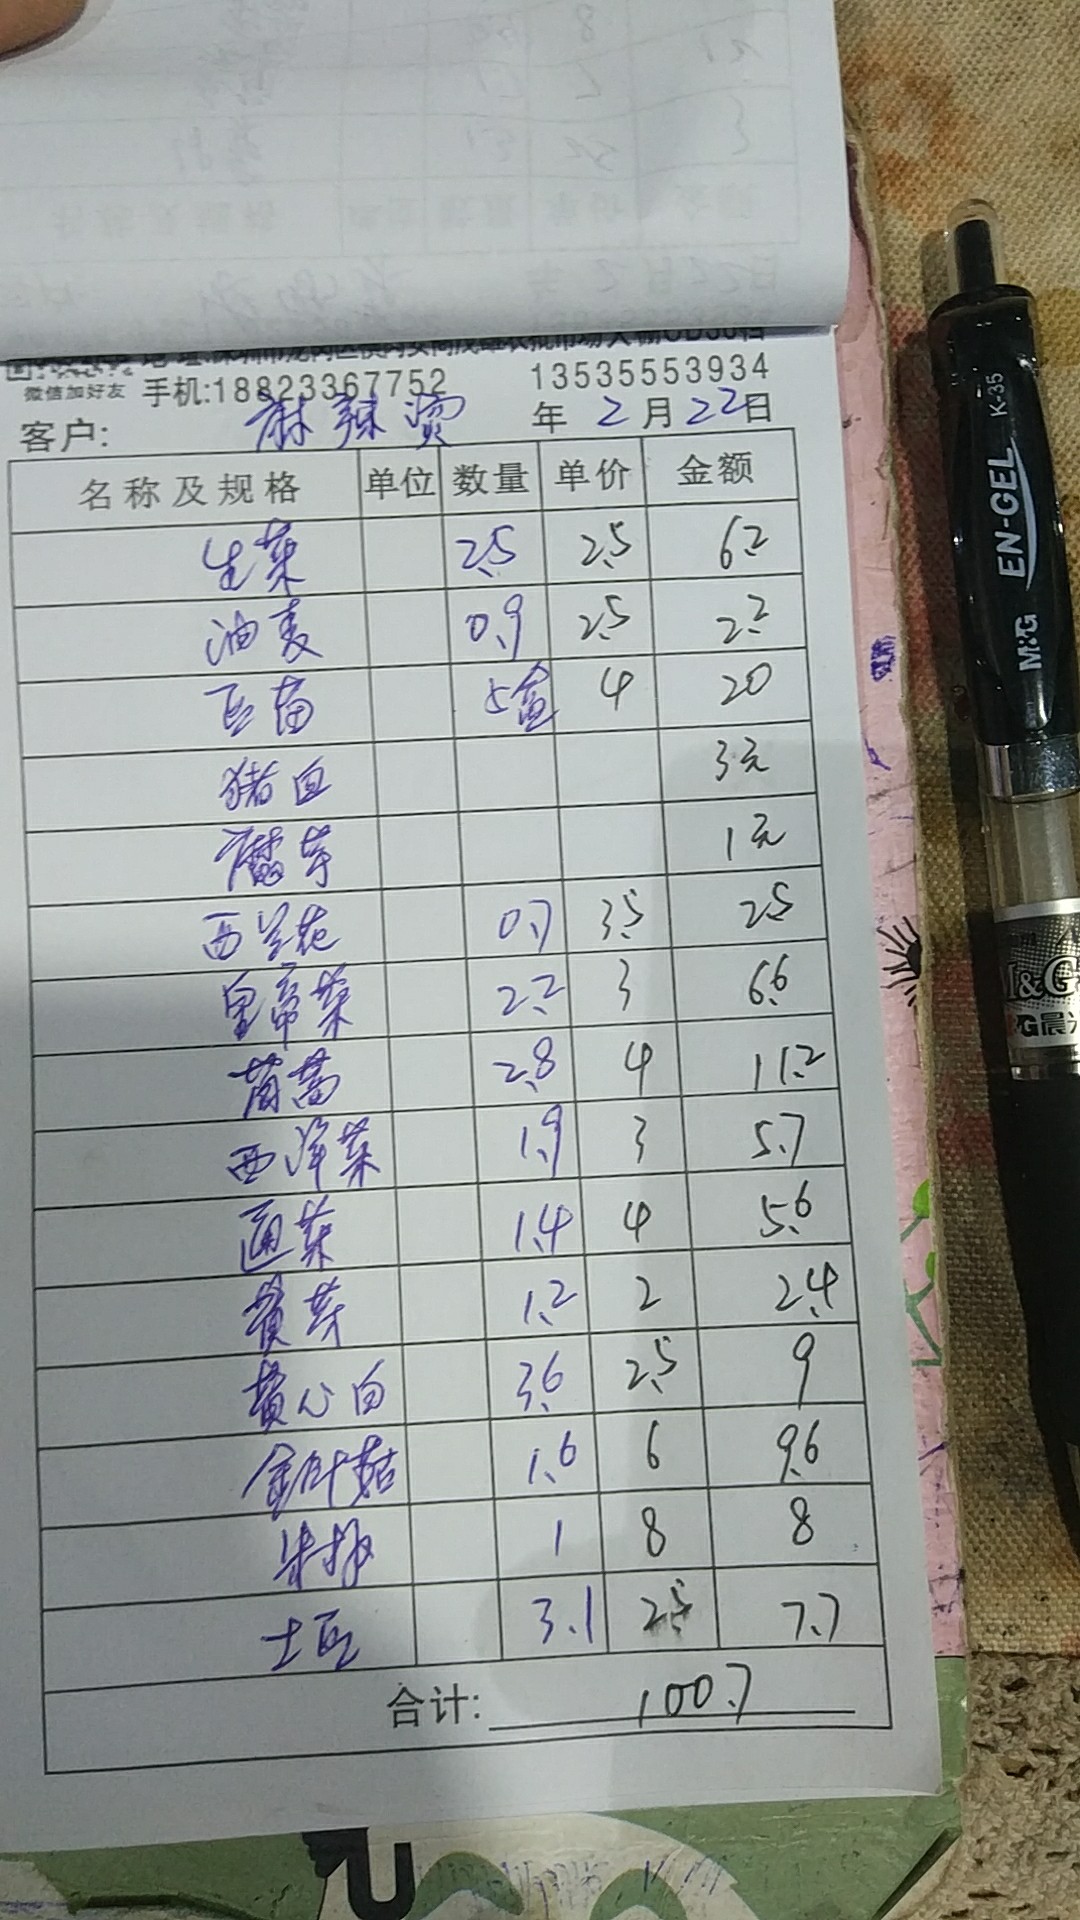 微信加好友 手机:18823367752 13535553934
客户: 麻辣烫 年 2 月 22 日
名称及规格 单位 数量 单价 金额
生菜 2.5 2.5 6.2
油麦 0.9 2.5 2.2
豆苗 5盒 4 20
猪血 3元
魔芋 1元
西兰花 0.7 3.5 2.5
皇帝菜 2.2 3 6.6
茼蒿 2.8 4 11.2
西洋菜 1.9 3 5.7
通菜 1.4 4 5.6
黄芽 1.2 2 2.4
黄心白 3.6 2.5 9
金针菇 1.6 6 9.6
1 8 8
土豆 3.1 2.5 7.7
合计: 100.7
K-35
EN-GEL
M&G
M&G